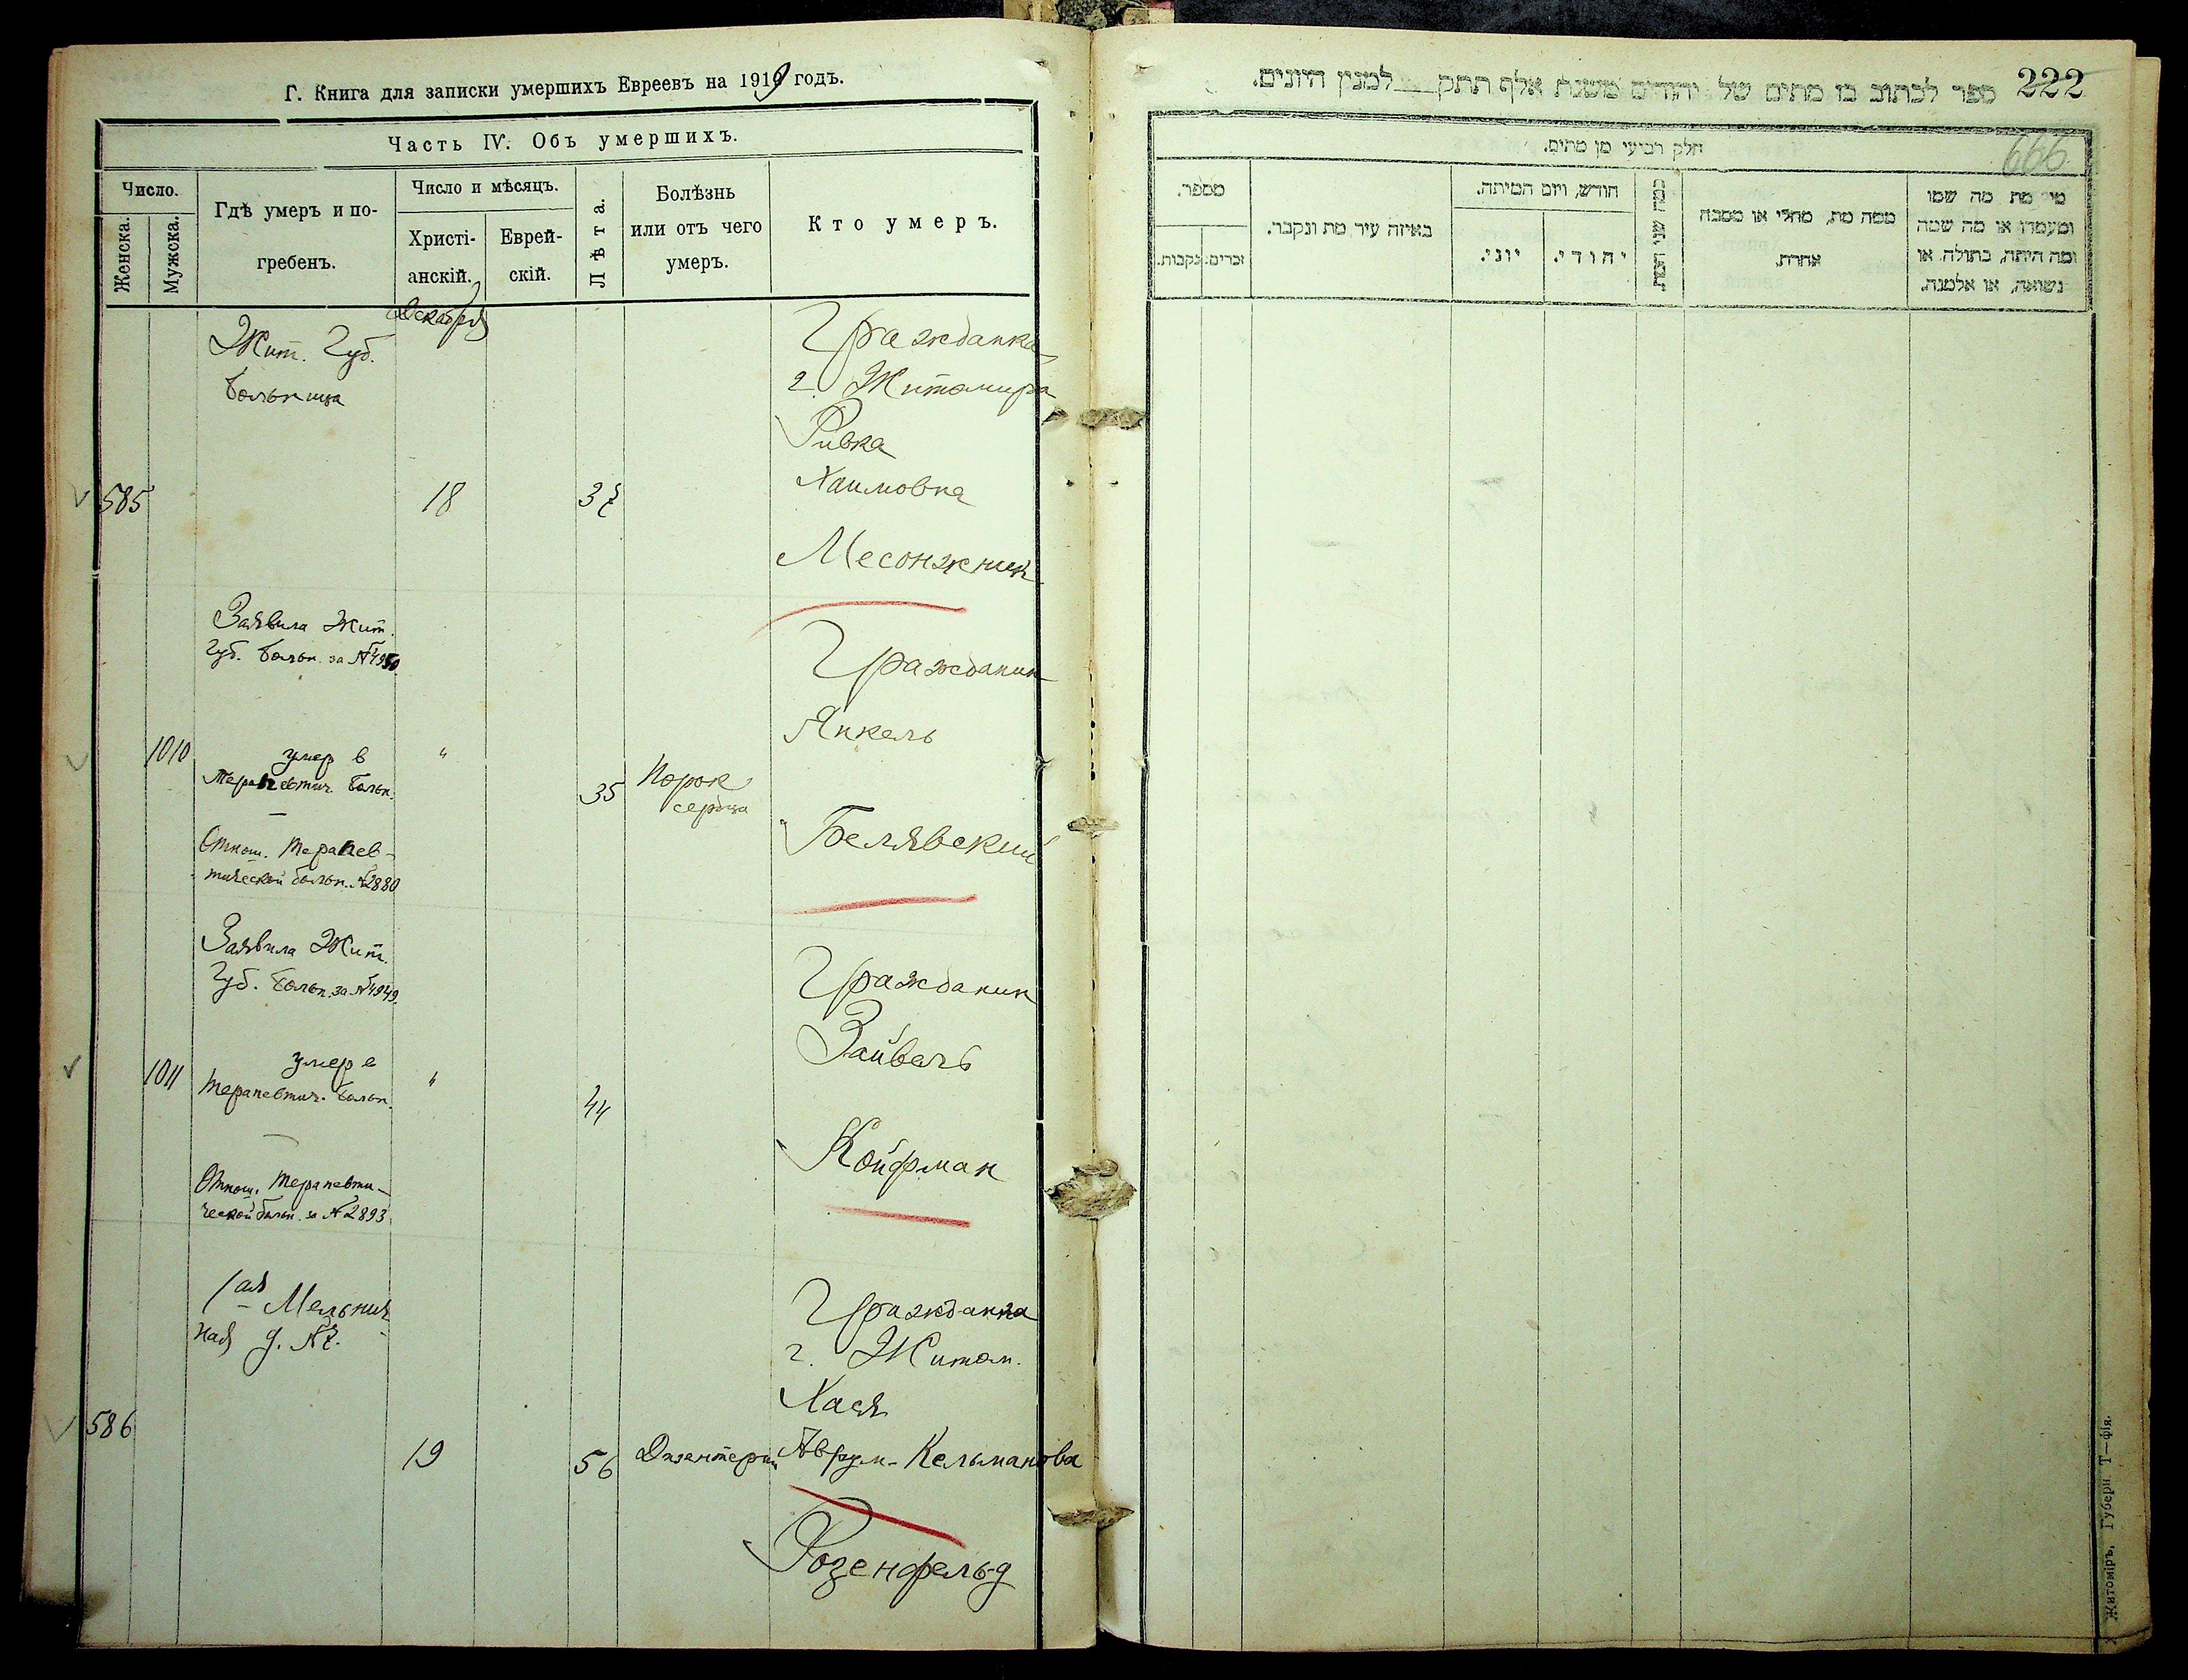 Г. Книга для записки умершихъ Евреевъ на 1919 годъ.
Часть IV. Объ умершихъ.
Число.
Женска.
Мужска.
Гдѣ умеръ и по-
гребенъ.
Число и мѣсяцъ.
Христі-
анскій.
Еврей-
скій.
Лѣта.
Болѣзнь
или отъ чего
умеръ.
Кто умеръ.
Декабря
585
Жит. Губ.
Больница
18
Гражданка
г. Житомира
Ривка
Хаимовна
Месонжник
Заявила Жит.
Губ. Больн. за № 4950.
1010
умер в
Терапевтич. Больн.
—
Отнош. Терапев-
тической больн. № 2880
"
35
Порок
сердца
Гражданин
Янкель
Белявский
Заявила Жит.
Губ. Больн. за № 4949.
1011
умер в
Терапевтич. Больн.
—
Отнош. Терапевти-
ческой больн. за № 2893
"
44
Гражданин
Зайвель
Койфман
586
1 ая
Мельнич
ная д. №
19
56
Дизентерии
Гражданка
г. Житом.
Хася
Аврум-Кельманова
Розенфельд
222
ספר לכתוב בו מתים של יהודים משנת אלף תתק למנין היונים.
666
חלק רביעי מן מתים.
מספר.
זכרים.
נקבות.
באיזה עיר מת ונקבר.
חודש, ויום המיתה.
יוני.
יהודי.
כמה שני
ממה מת, מחלי או מסבה
אחרת.
מי מת מה שמו
ומעמדו או מה שמה
ומה היתה, בתולה או
נשואה, או אלמנה.
Житоміръ, Губерн. Т—фія.